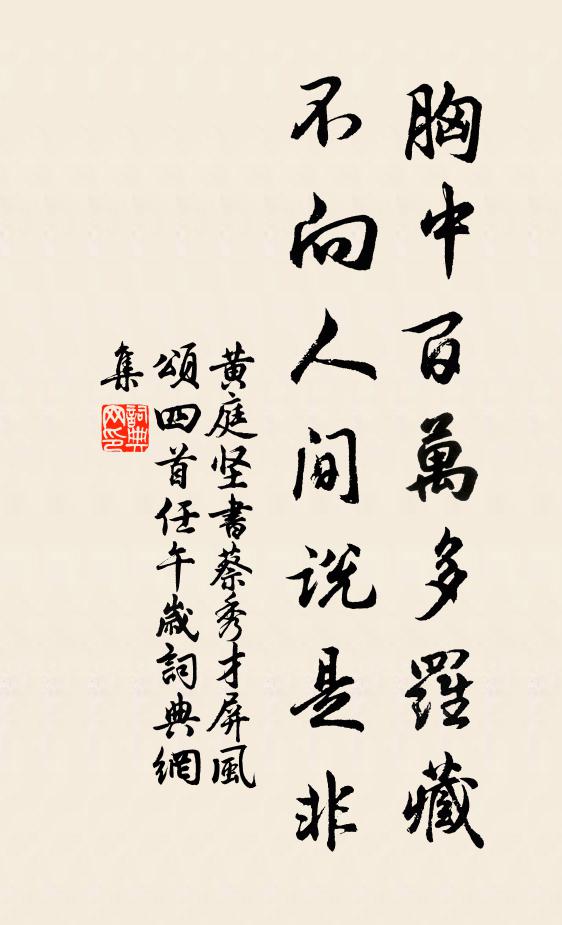 胸中百萬多羅藏
不向人间説是非
黄庭坚書蔡秀才屏風
頌四首任午歲詞典網
集
詞典网印